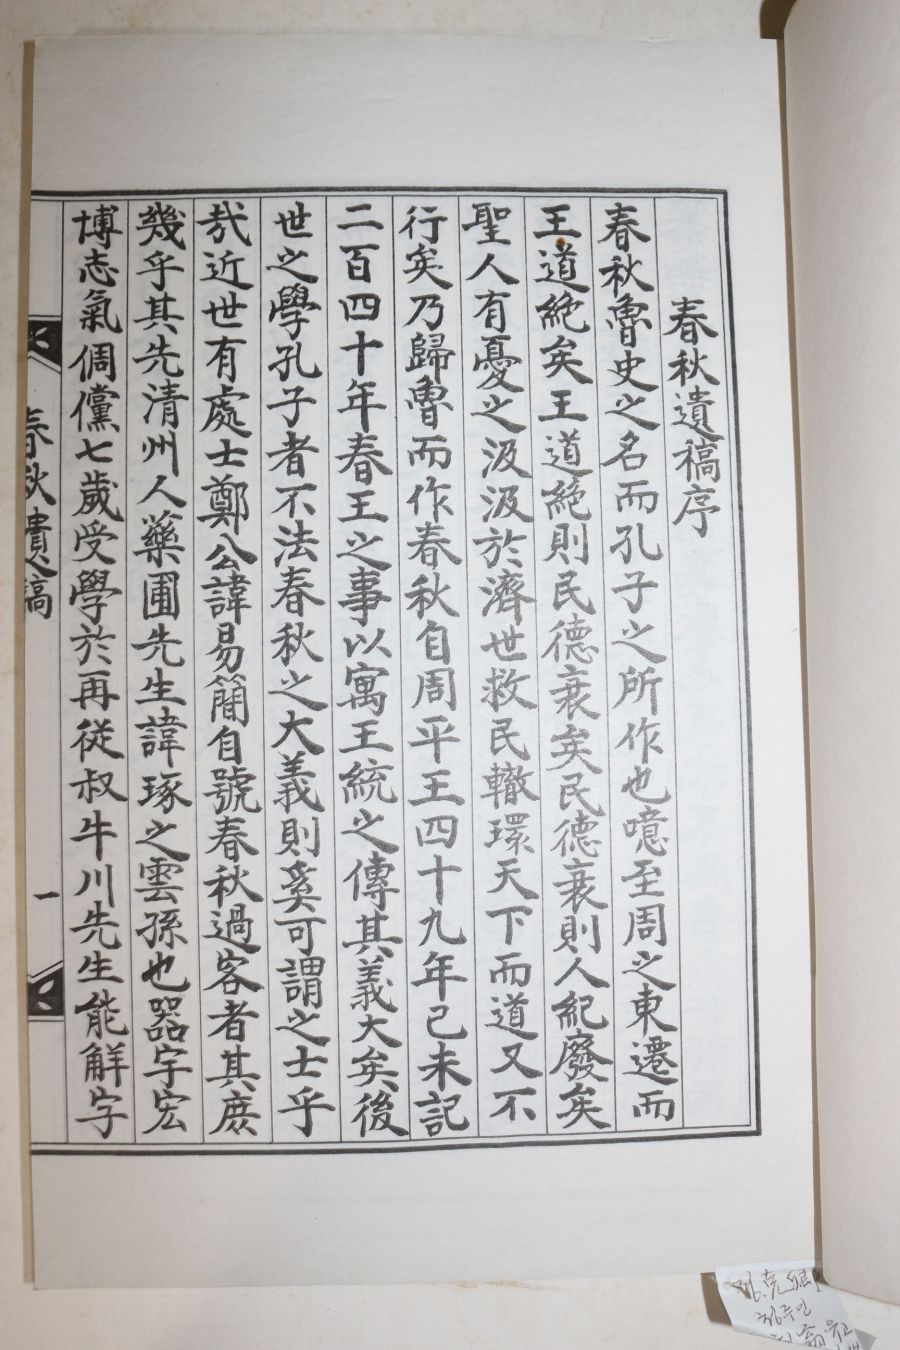 春秋遺稿序
春秋魯史之名而孔子之所作也噫至周之東遷而
王道絶矣王道絶則民德衰矣民德衰則人紀廢矣
聖人有憂之汲汲於濟世救民轍環天下而道又不
行矣乃歸魯而作春秋自周平王四十九年己未記
二百四十年春王之事以寓王統之傳其義大矣後
世之學孔子者不法春秋之大義則奚可謂之士乎
哉近世有處士鄭公諱易簡自號春秋過客者其庶
幾乎其先清州人藥圃先生諱琢之雲孫也器宇宏
博志氣倜儻七歲受學於再從叔牛川先生能解字
春秋遺稿
一
청주인